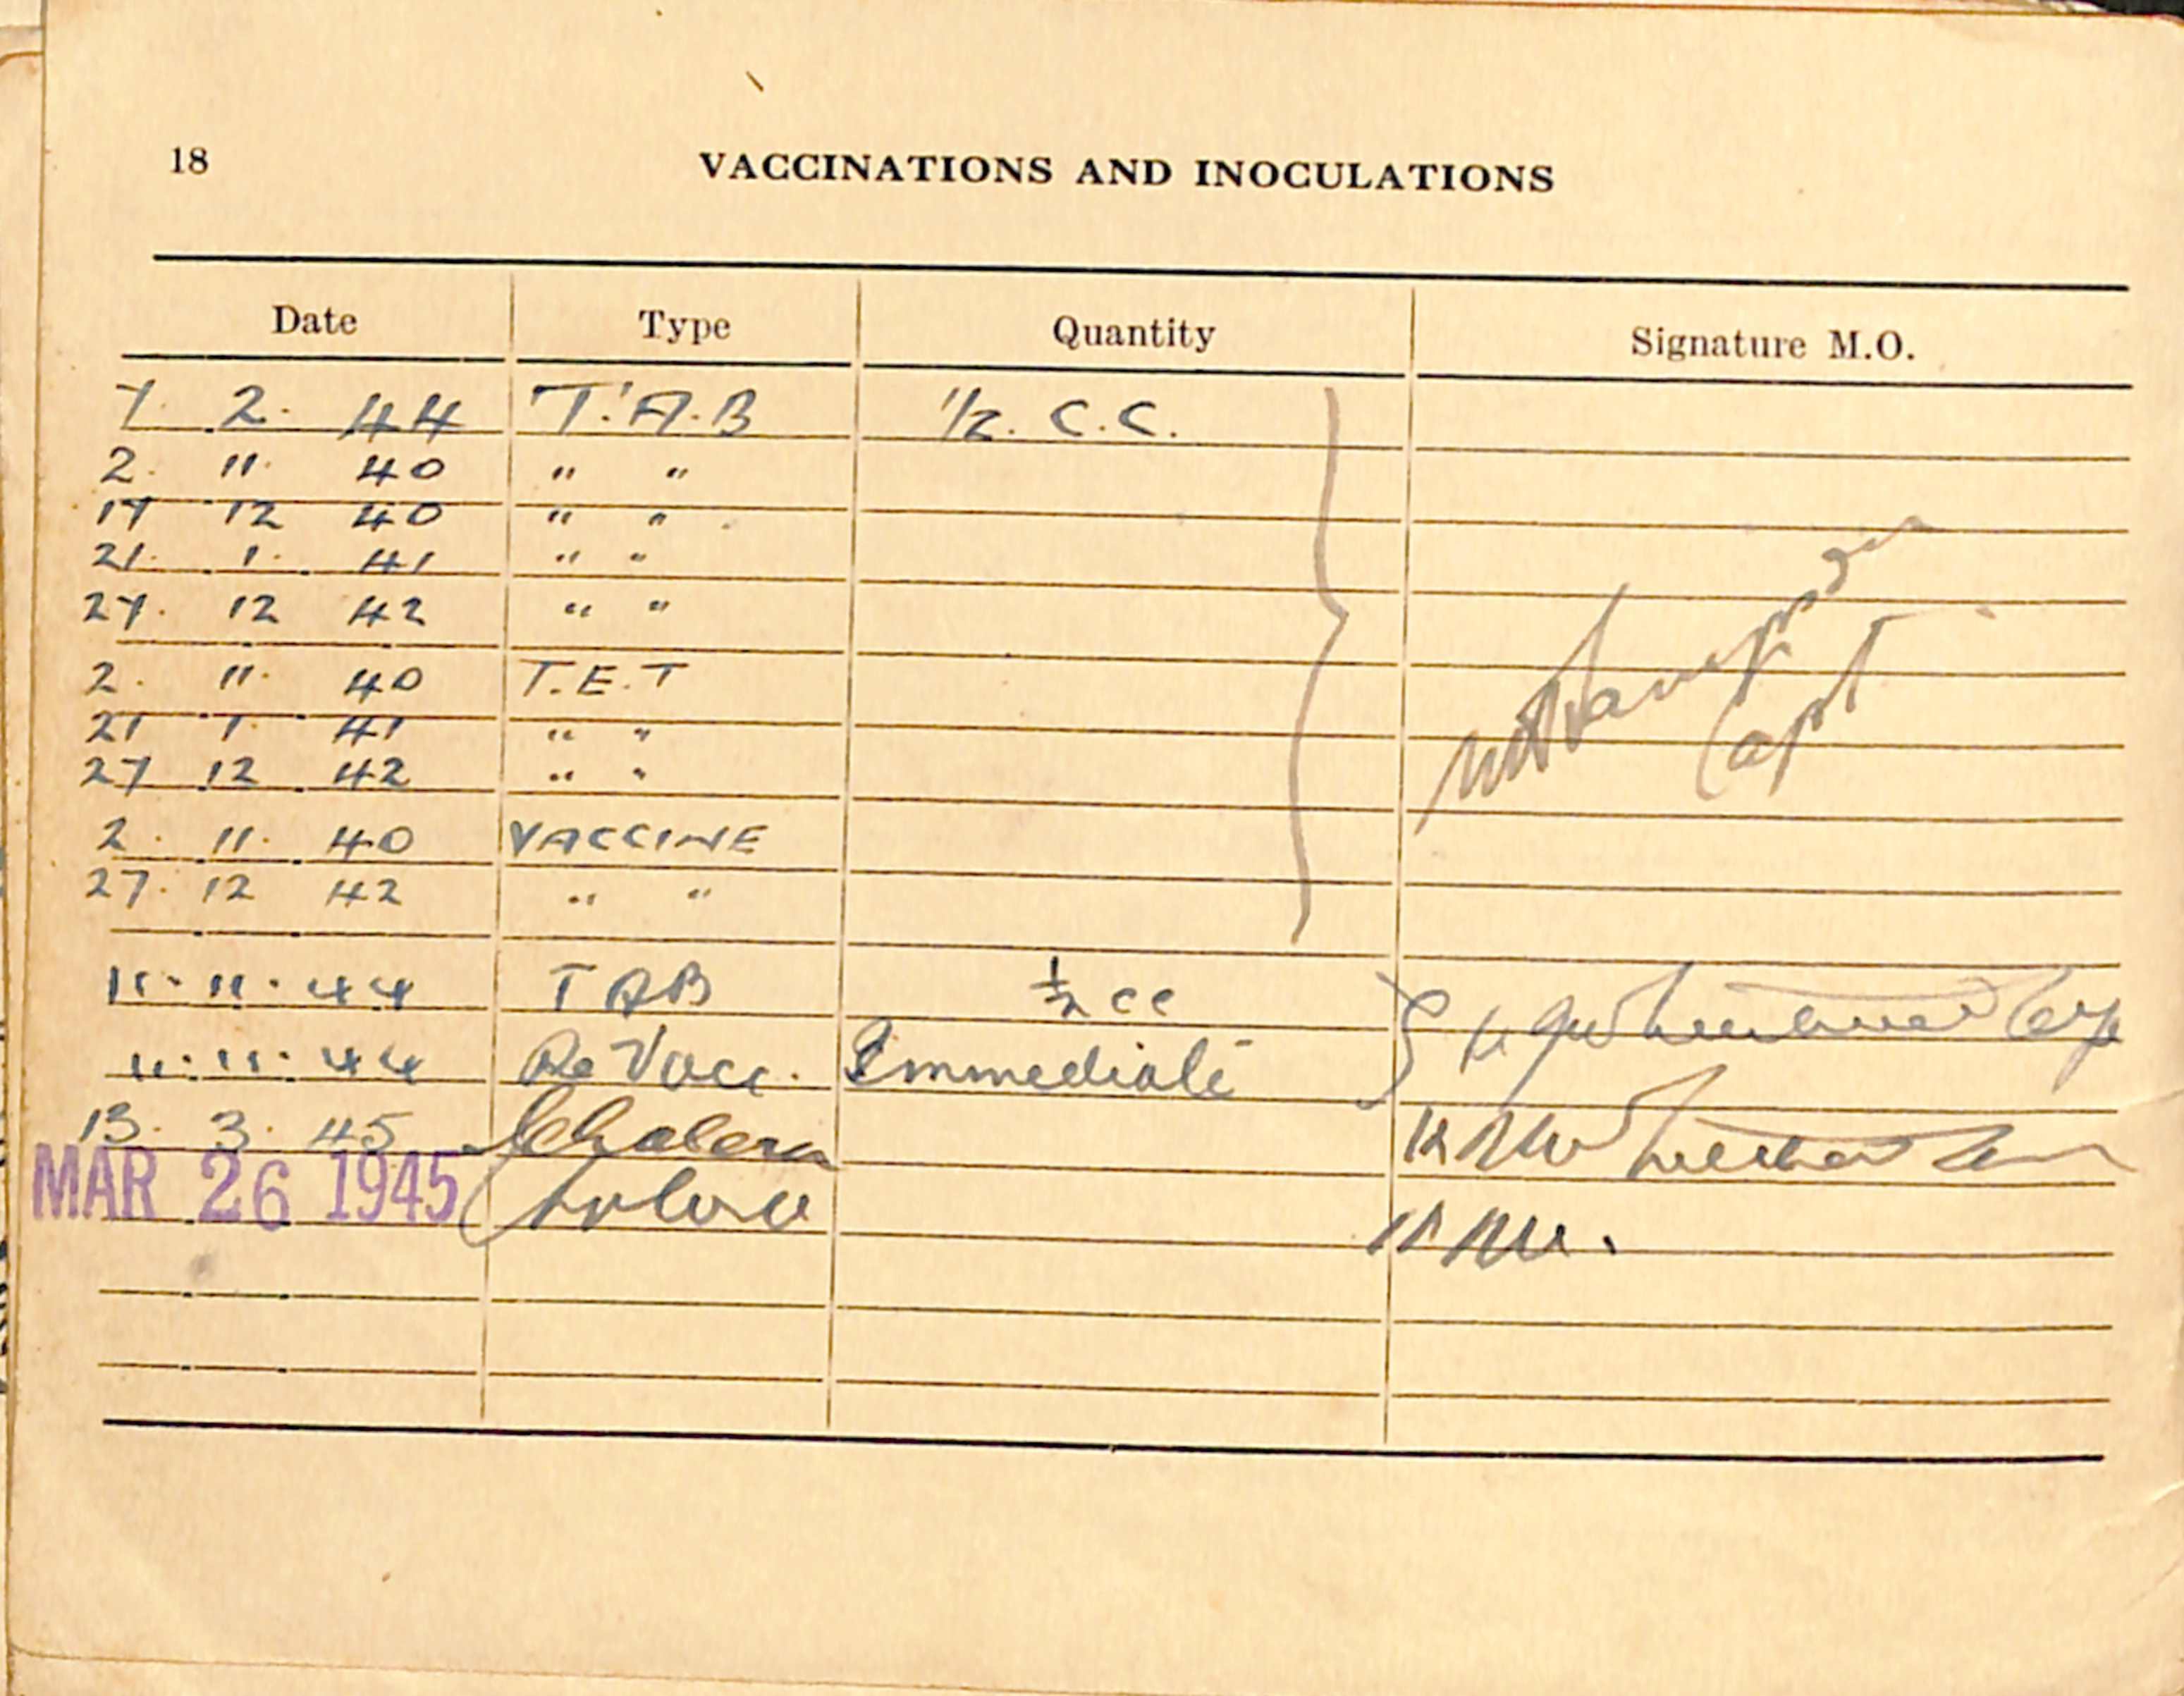 18
VACCINATIONS AND INOCULATIONS
Date Type Quantity Signature M.O.
7. 2. 44 T.A.B 1/2. C.C.
2. 11. 40 " "
17 12 40 " "
21. 1. 41 " "
27. 12 42 " "
2. 11. 40 T.E.T
21 1. 41 " "
27 12 42 " "
Capt
2. 11. 40 VACCINE
27. 12 42 " "
11.11.44 TAB 1/2 cc
11.11.44 Re Vacc. Immediate
13. 3. 45 Cholera
MAR 26 1945 Cholera